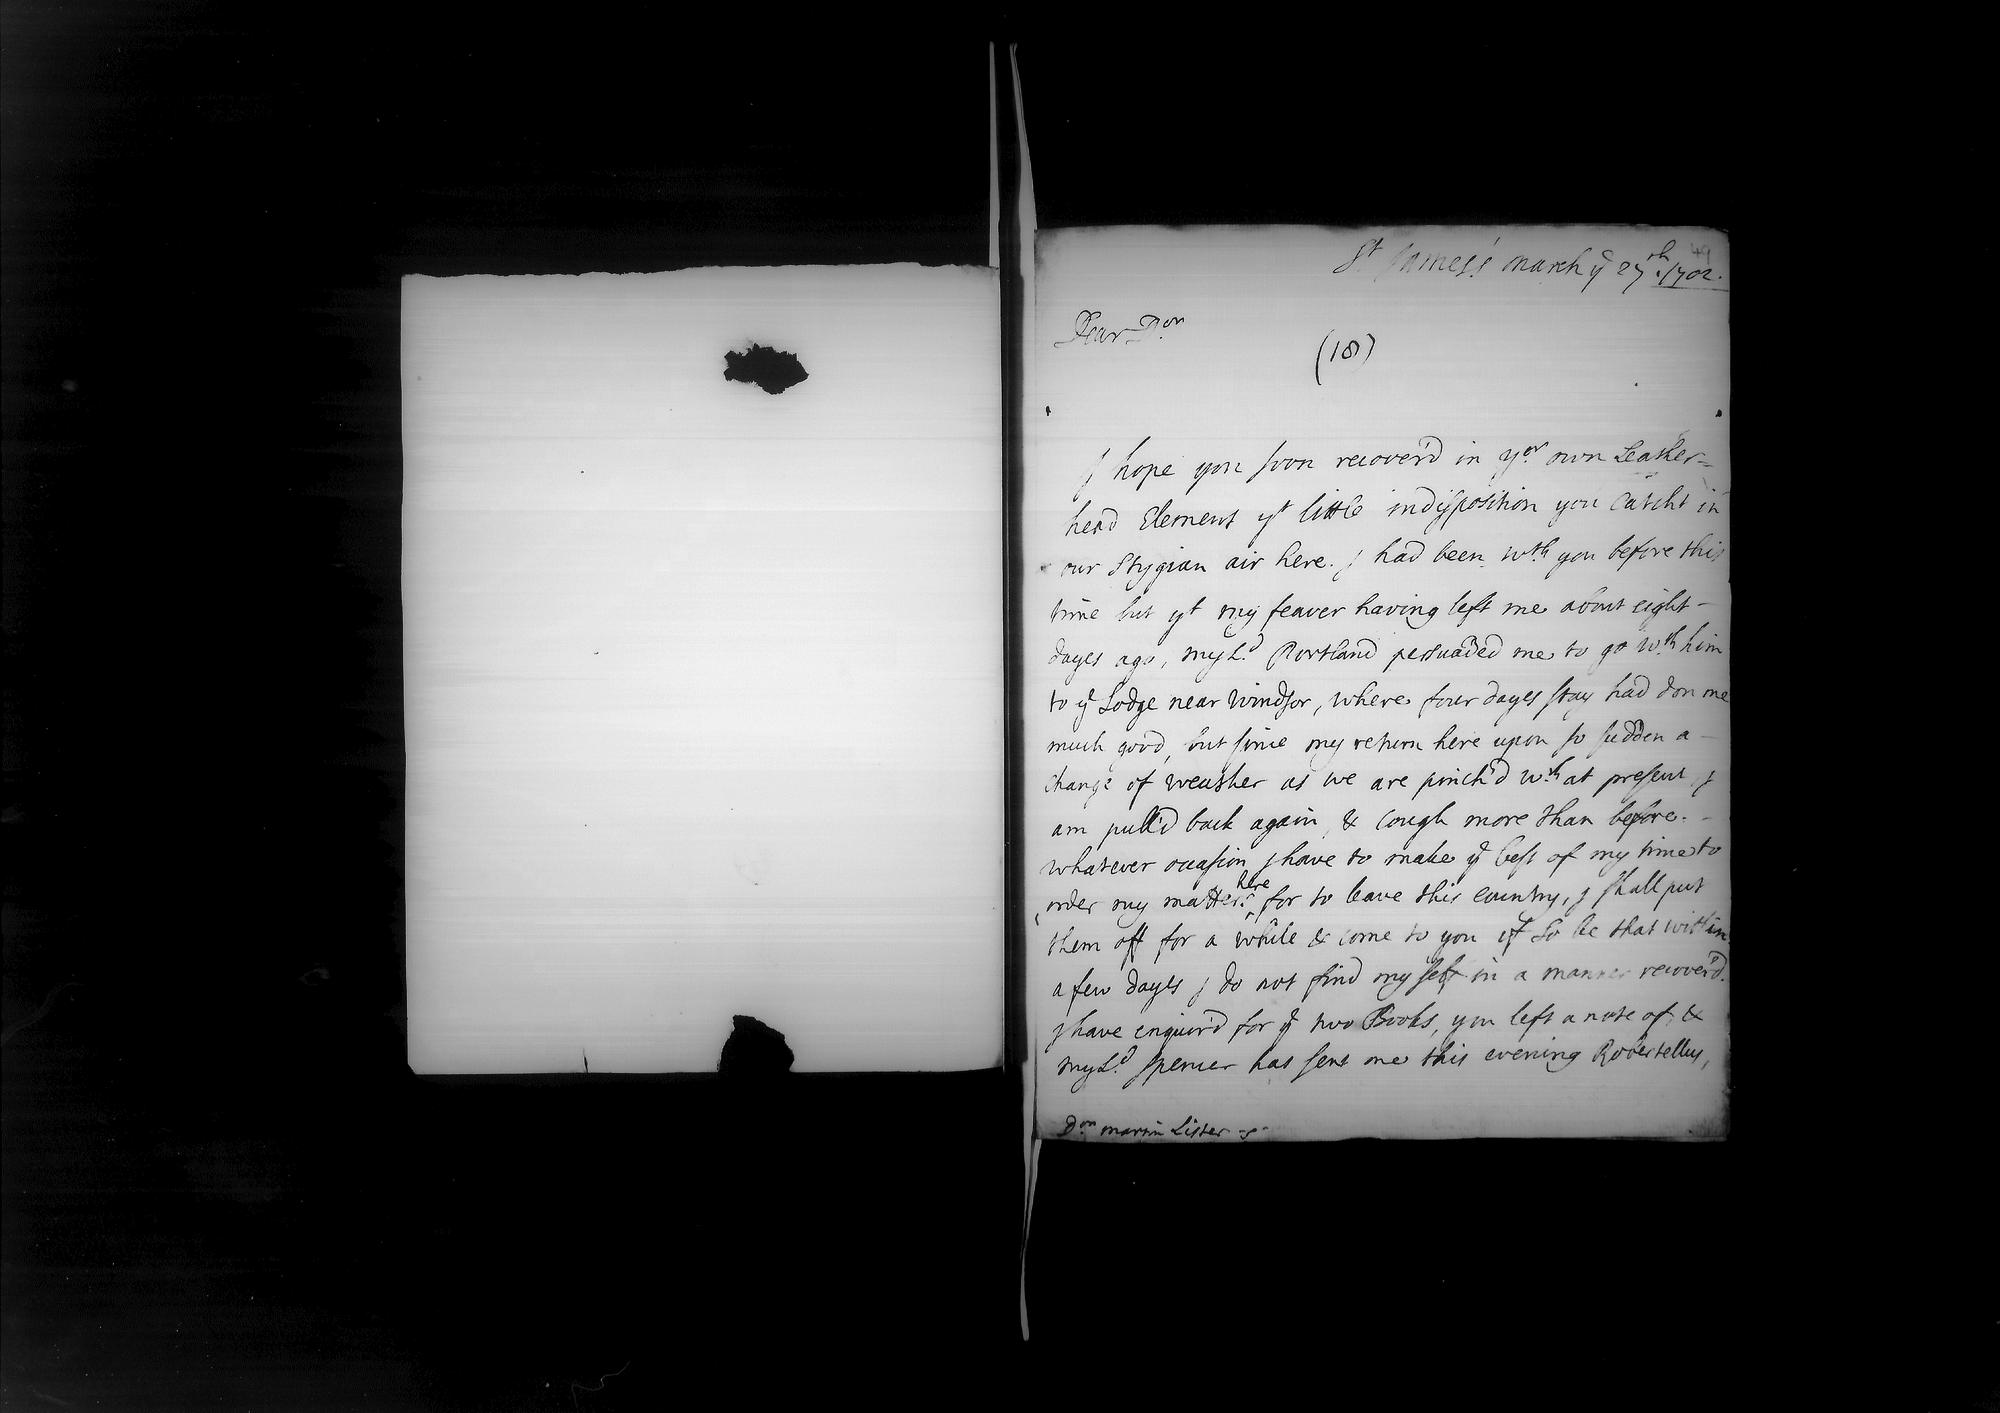 St James's march ye 27th. 1702.
49
Dear Dor
(18)
J hope you soon recover'd in yor own Leather=
head Element yt little indisposition you Catcht in
our Stygian air here. J had been wth you before this
time but yt my feaver having left me about eight –
dayes ago, my Ld. Portland persuaded me to go wth him
to ye Lodge near windsor, where four dayes stay had don me
much good, but since my return here upon so sudden a –
change of weather as we are pinch'd wth at present, J
am pull'd back again, & Cough more than before. –
whatever occasion J have to make ye best of my time to
order my matters here for to leave this country, J shall put
them off for a while & come to you if so be that within
a few dayes J do not find my self in a manner recover'd.
J have enquir'd for ye two Books, you left a note of, &
my Ld. Spencer has sent me this evening Robertellus,
Dor martin Lister